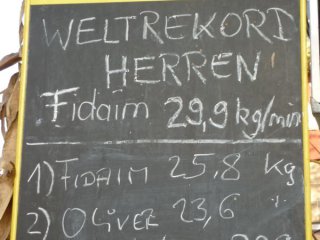 WELTREKORD
HERREN
Fidaim 29,9 kg/min
1) FIDAIM 25,8 Kg
2) OLIVER 23,6 "